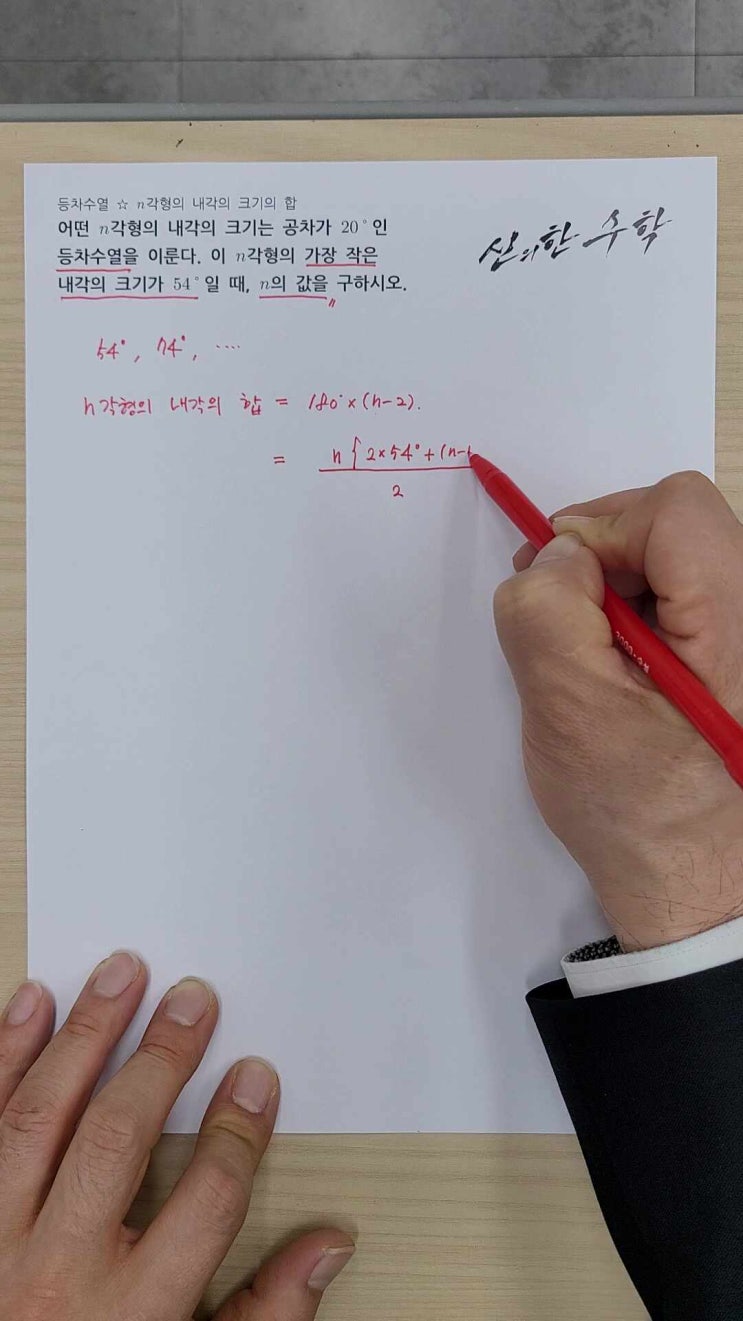 등차수열 ☆ n각형의 내각의 크기의 합
어떤 n각형의 내각의 크기는 공차가 20°인
등차수열을 이룬다. 이 n각형의 가장 작은
내각의 크기가 54°일 때, n의 값을 구하시오.
신의한 수학
54°, 74°, ....
n각형의 내각의 합 = 180°×(n-2).
= n{2×54°+(n-
2